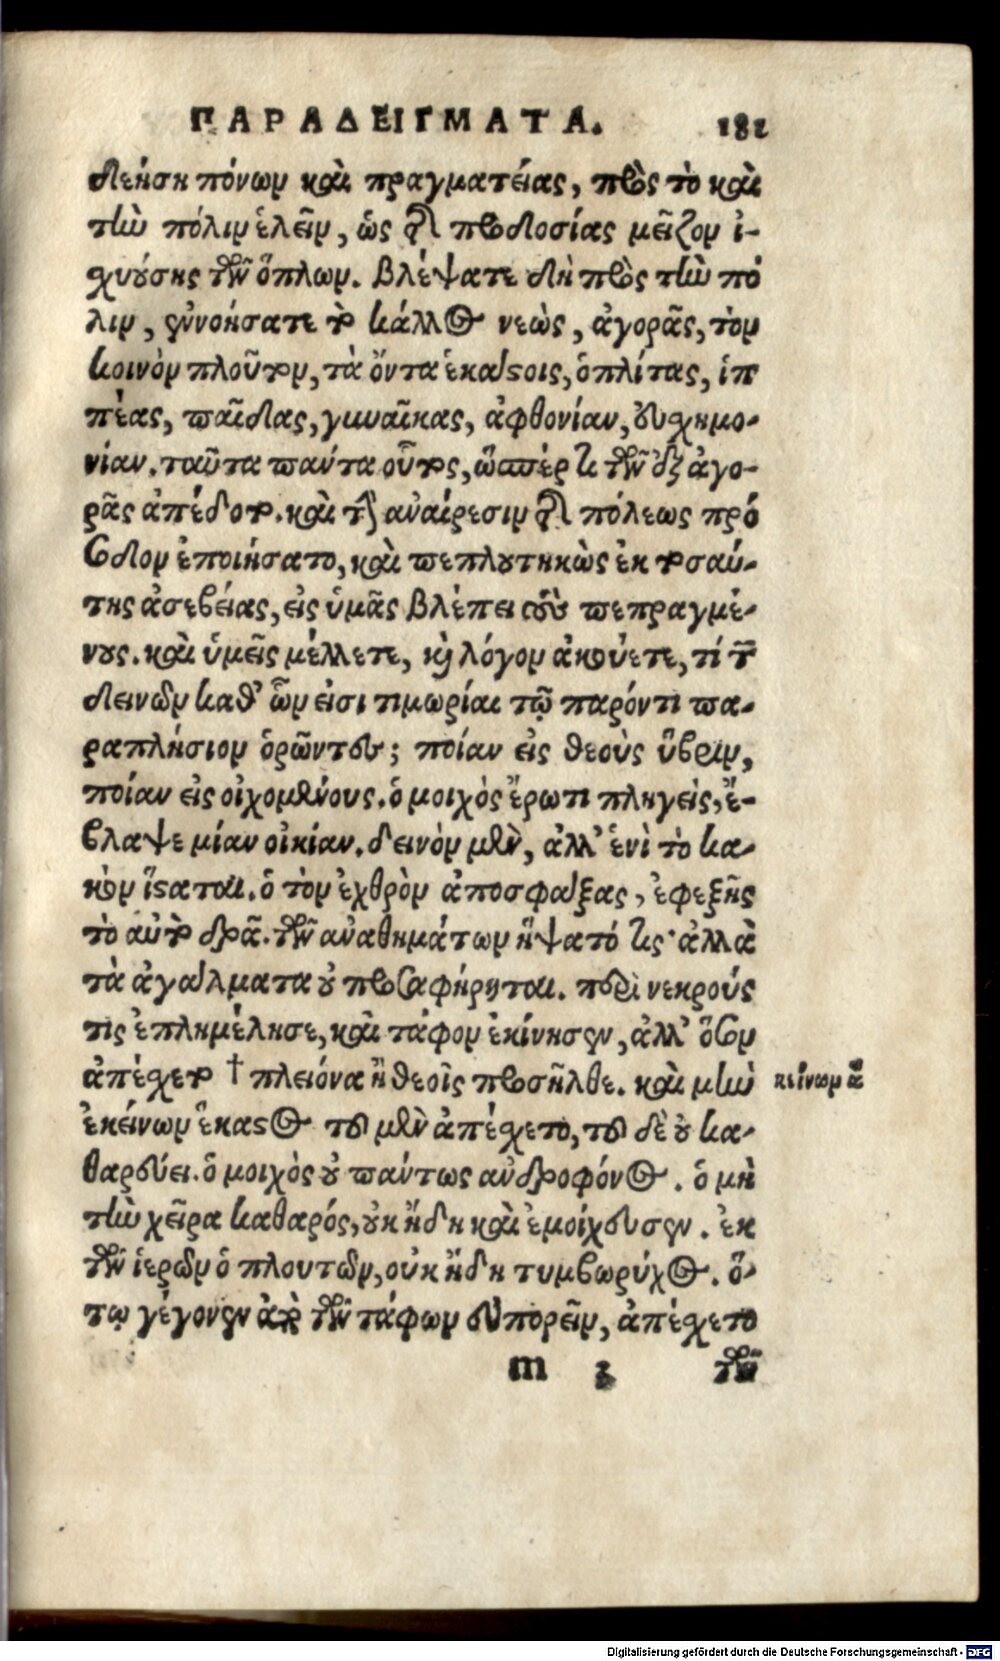 ΠΑΡΑΔΕΙΓΜΑΤΑ. 181
δεήση πόνων καὶ πραγματείας, πρὸς τὸ καὶ
τὴν πόλιν ἑλεῖν, ὡς τῆς προδοσίας μεῖζον ἰ-
χυούσης τῶν ὅπλων. βλέψατε δὴ πρὸς τὴν πό
λιν, ἐννοήσατε τὸ κάλλος νεὼς, ἀγορᾶς, τὸν
κοινὸν πλοῦτον, τὰ ὄντα ἑκάστοις, ὁπλίτας, ἱπ
πέας, παῖδας, γυναῖκας, ἀφθονίαν, εὐσχημο-
νίαν. ταῦτα πάντα οὗτος, ὥσπερ τι τῶν ἐξ ἀγο-
ρᾶς ἀπέδοτο. καὶ τὴν ἀναίρεσιν τῆς πόλεως πρό
σοδον ἐποιήσατο, καὶ πεπλουτηκὼς ἐκ τοσαύ-
της ἀσεβείας, εἰς ὑμᾶς βλέπει σὺν πεπραγμέ-
νους. καὶ ὑμεῖς μέλλετε, καὶ λόγον ἀκούετε, τί τῶν
δεινῶν καθ' ὧν εἰσι τιμωρίαι τῷ παρόντι πα-
ραπλήσιον ὁρῶντες; ποίαν εἰς θεοὺς ὕβριν,
ποίαν εἰς οἰχομένους. ὁ μοιχὸς ἔρωτι πληγεὶς, ἔ-
βλαψε μίαν οἰκίαν. δεινὸν μὲν, ἀλλ' ἑνὶ τὸ κα-
κὸν ἵσαται. ὁ τὸν ἐχθρὸν ἀποσφάξας, ἐφεξῆς
τὸ αὐτὸ δρᾶ. τῶν ἀναθημάτων ἥψατό τις· ἀλλὰ
τὰ ἀγάλματα οὐ προσαφήρηται. περὶ νεκροὺς
τὶς ἐπλημέλησε, καὶ τάφον ἐκίνησεν, ἀλλ' ὅσον
ἀπέχετο † πλειόνα ἢ θεοῖς προσῆλθε. καὶ μὴν
ἐκείνων ἕκαστος τοῦ μὲν ἀπέχετο, τοῦ δὲ οὐ κα-
θαρεύει. ὁ μοιχὸς οὐ πάντως ἀνδροφόνος. ὁ μὴ
τὴν χεῖρα καθαρός, οὐκ ἤδη καὶ ἐμοίχευσεν. ἐκ
τῶν ἱερῶν ὁ πλουτῶν, οὐκ ἤδη τυμβωρύχος. ὅ-
τῳ γέγονεν ἀπὸ τῶν τάφων εὐπορεῖν, ἀπέχετο
κείνων ἃ
m 3 τῶν
Digitalisierung gefördert durch die Deutsche Forschungsgemeinschaft - DFG